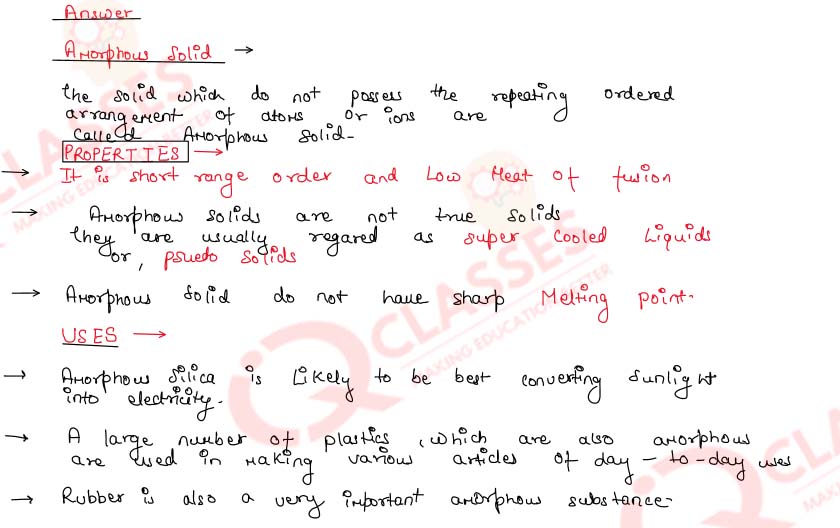 Answer
Amorphous Solid →
The solid which do not possess the repeating ordered
arrangement of atoms or ions are
called Amorphous Solid-
PROPERTIES →
→ It is short range order and Low Heat of fusion
→ Amorphous solids are not true solids
they are usually regared as super cooled Liquids
or, psuedo solids
→ Amorphous Solid do not have sharp Melting point.
USES →
→ Amorphous Silica is Likely to be best converting Sunlight
into electricity.
→ A large number of plastics, which are also amorphous
are used in making various articles of day-to-day uses
→ Rubber is also a very important amorphous substance-
IQ CLASSES
MAKING EDUCATION BETTER